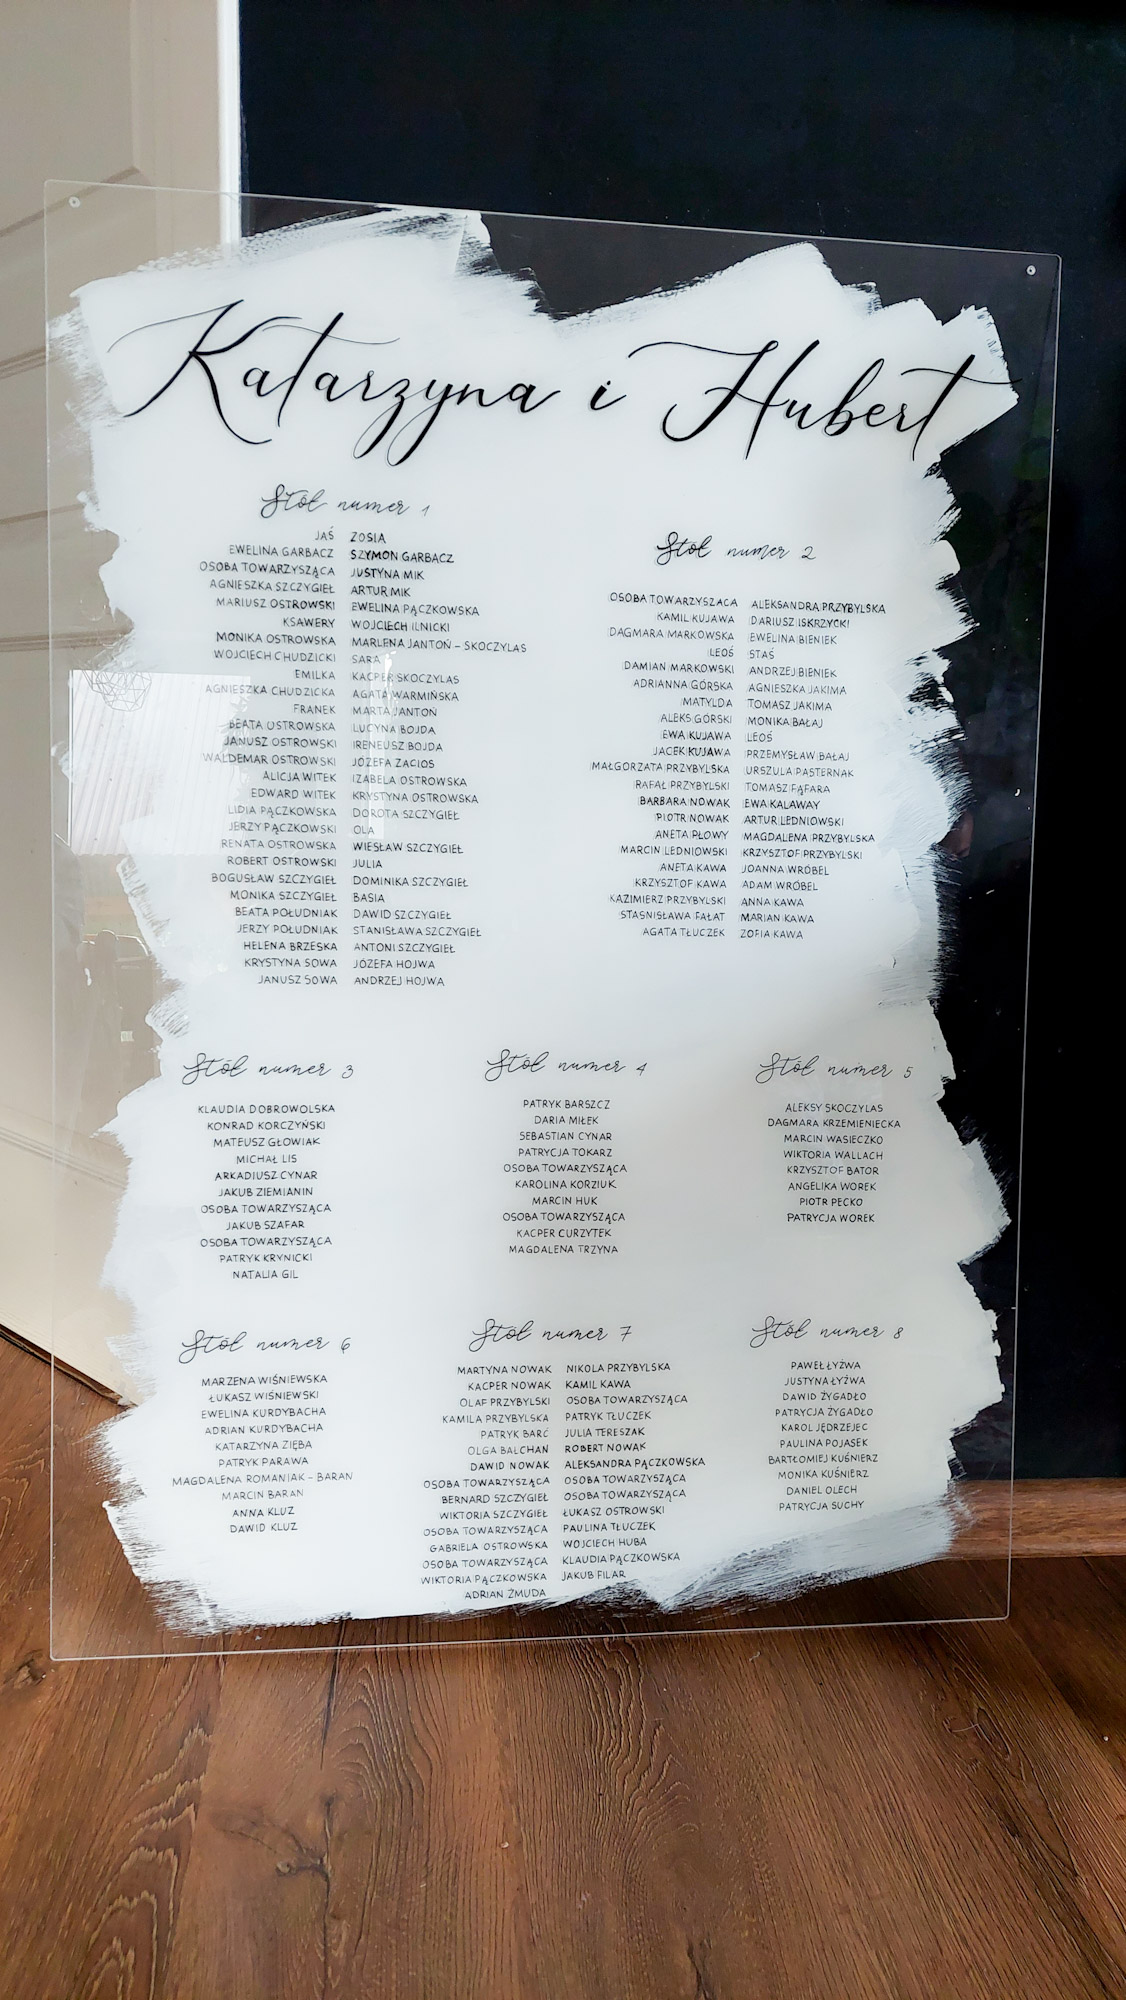 Katarzyna i Hubert
Stół numer 1
JAŚ ZOSIA
EWELINA GARBACZ SZYMON GARBACZ
OSOBA TOWARZYSZĄCA JUSTYNA MIK
AGNIESZKA SZCZYGIEŁ ARTUR MIK
MARIUSZ OSTROWSKI EWELINA PĄCZKOWSKA
KSAWERY WOJCIECH ILNICKI
MONIKA OSTROWSKA MARLENA JANTOŃ - SKOCZYLAS
WOJCIECH CHUDZICKI SARA
EMILKA KACPER SKOCZYLAS
AGNIESZKA CHUDZICKA AGATA WARMIŃSKA
FRANEK MARTA JANTOŃ
BEATA OSTROWSKA LUCYNA BOJDA
JANUSZ OSTROWSKI IRENEUSZ BOJDA
WALDEMAR OSTROWSKI JÓZEFA ZACIOS
ALICJA WITEK IZABELA OSTROWSKA
EDWARD WITEK KRYSTYNA OSTROWSKA
LIDIA PĄCZKOWSKA DOROTA SZCZYGIEŁ
JERZY PĄCZKOWSKI OLA
RENATA OSTROWSKA WIESŁAW SZCZYGIEŁ
ROBERT OSTROWSKI JULIA
BOGUSŁAW SZCZYGIEŁ DOMINIKA SZCZYGIEŁ
MONIKA SZCZYGIEŁ BASIA
BEATA POŁUDNIAK DAWID SZCZYGIEŁ
JERZY POŁUDNIAK STANISŁAWA SZCZYGIEŁ
HELENA BRZESKA ANTONI SZCZYGIEŁ
KRYSTYNA SOWA JÓZEFA HOJWA
JANUSZ SOWA ANDRZEJ HOJWA
Stół numer 2
OSOBA TOWARZYSZACA ALEKSANDRA PRZYBYLSKA
KAMIL KUJAWA DARIUSZ ISKRZYCKI
DAGMARA MARKOWSKA EWELINA BIENIEK
LEOŚ STAŚ
DAMIAN MARKOWSKI ANDRZEJ BIENIEK
ADRIANNA GÓRSKA AGNIESZKA JAKIMA
MATYLDA TOMASZ JAKIMA
ALEKS GÓRSKI MONIKA BAŁAJ
EWA KUJAWA LEOŚ
JACEK KUJAWA PRZEMYSŁAW BAŁAJ
MAŁGORZATA PRZYBYLSKA URSZULA PASTERNAK
RAFAŁ PRZYBYLSKI TOMASZ FĄFARA
BARBARA NOWAK EWA KALAWAY
PIOTR NOWAK ARTUR LEDNIOWSKI
ANETA PŁOWY MAGDALENA PRZYBYLSKA
MARCIN LEDNIOWSKI KRZYSZTOF PRZYBYLSKI
ANETA KAWA JOANNA WRÓBEL
KRZYSZTOF KAWA ADAM WRÓBEL
KAZIMIERZ PRZYBYLSKI ANNA KAWA
STASNISŁAWA FAŁAT MARIAN KAWA
AGATA TŁUCZEK ZOFIA KAWA
Stół numer 3
KLAUDIA DOBROWOLSKA
KONRAD KORCZYŃSKI
MATEUSZ GŁOWIAK
MICHAŁ LIS
ARKADIUSZ CYNAR
JAKUB ZIEMIANIN
OSOBA TOWARZYSZĄCA
JAKUB SZAFAR
OSOBA TOWARZYSZĄCA
PATRYK KRYNICKI
NATALIA GIL
Stół numer 4
PATRYK BARSZCZ
DARIA MIŁEK
SEBASTIAN CYNAR
PATRYCJA TOKARZ
OSOBA TOWARZYSZĄCA
KAROLINA KORZIUK
MARCIN HUK
OSOBA TOWARZYSZĄCA
KACPER CURZYTEK
MAGDALENA TRZYNA
Stół numer 5
ALEKSY SKOCZYLAS
DAGMARA KRZEMIENIECKA
MARCIN WASIECZKO
WIKTORIA WALLACH
KRZYSZTOF BATOR
ANGELIKA WOREK
PIOTR PECKO
PATRYCJA WOREK
Stół numer 6
MARZENA WIŚNIEWSKA
ŁUKASZ WIŚNIEWSKI
EWELINA KURDYBACHA
ADRIAN KURDYBACHA
KATARZYNA ZIĘBA
PATRYK PARAWA
MAGDALENA ROMANIAK - BARAN
MARCIN BARAN
ANNA KLUZ
DAWID KLUZ
Stół numer 7
MARTYNA NOWAK NIKOLA PRZYBYLSKA
KACPER NOWAK KAMIL KAWA
OLAF PRZYBYLSKI OSOBA TOWARZYSZĄCA
KAMILA PRZYBYLSKA PATRYK TŁUCZEK
PATRYK BARĆ JULIA TERESZAK
OLGA BAŁCHAN ROBERT NOWAK
DAWID NOWAK ALEKSANDRA PĄCZKOWSKA
OSOBA TOWARZYSZĄCA OSOBA TOWARZYSZĄCA
BERNARD SZCZYGIEŁ OSOBA TOWARZYSZĄCA
WIKTORIA SZCZYGIEŁ ŁUKASZ OSTROWSKI
OSOBA TOWARZYSZĄCA PAULINA TŁUCZEK
GABRIELA OSTROWSKA WOJCIECH HUBA
OSOBA TOWARZYSZĄCA KLAUDIA PĄCZKOWSKA
WIKTORIA PĄCZKOWSKA JAKUB FILAR
ADRIAN ŻMUDA
Stół numer 8
PAWEŁ ŁYŻWA
JUSTYNA ŁYŻWA
DAWID ŻYGADŁO
PATRYCJA ŻYGADŁO
KAROL JĘDRZEJEC
PAULINA POJASEK
BARTŁOMIEJ KUŚNIERZ
MONIKA KUŚNIERZ
DANIEL OLECH
PATRYCJA SUCHY